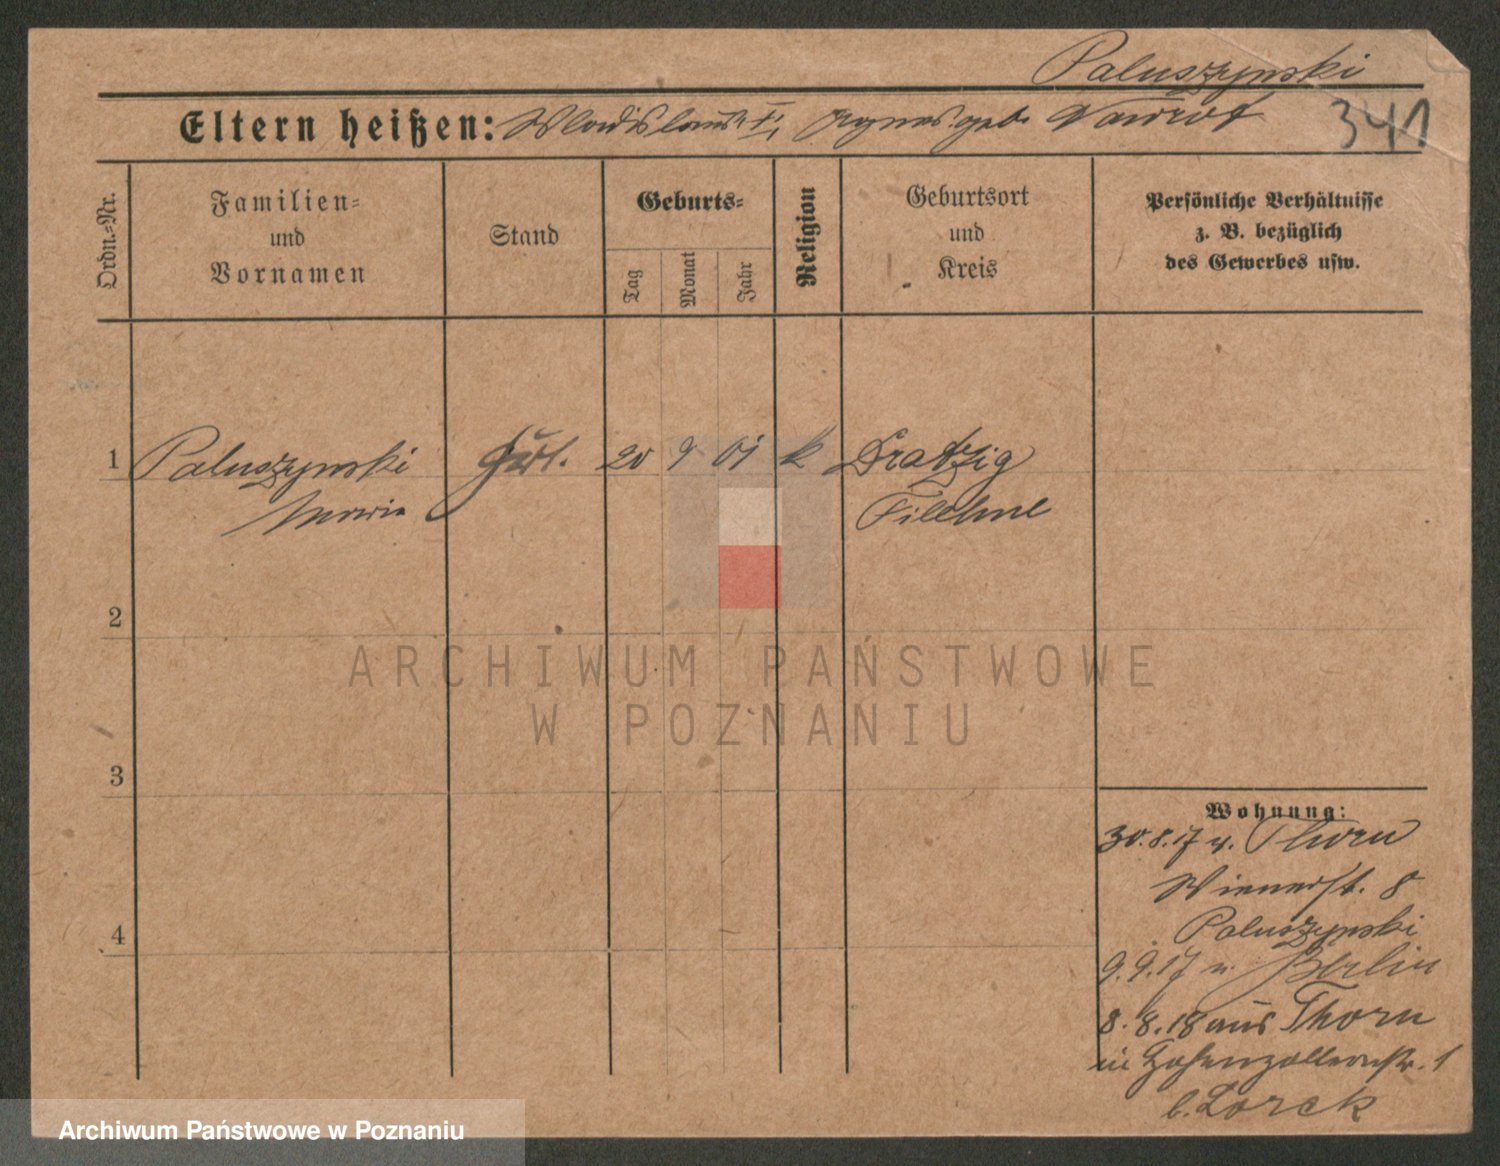 Paluszynski
Eltern heißen: Wladislaus †, Agnes geb. Nawrot
341
Ordn.=Nr.
Familien=
und
Vornamen
Stand
Geburts=
Tag
Monat
Jahr
Religion
Geburtsort
und
Kreis
Persönliche Verhältnisse
z. B. bezüglich
des Gewerbes usw.
1 Paluszynski 20 9 01 k Dratzig
Maria Filehne
2
3
4
Wohnung:
30.8.17 v. Thorn
Wienerst. 8
Paluszynski
9.9.17 n. Berlin
8.8.18 aus Thorn
in Hohenzollernstr. 1
b. Lorek
ARCHIWUM PAŃSTWOWE
W POZNANIU
Archiwum Państwowe w Poznaniu